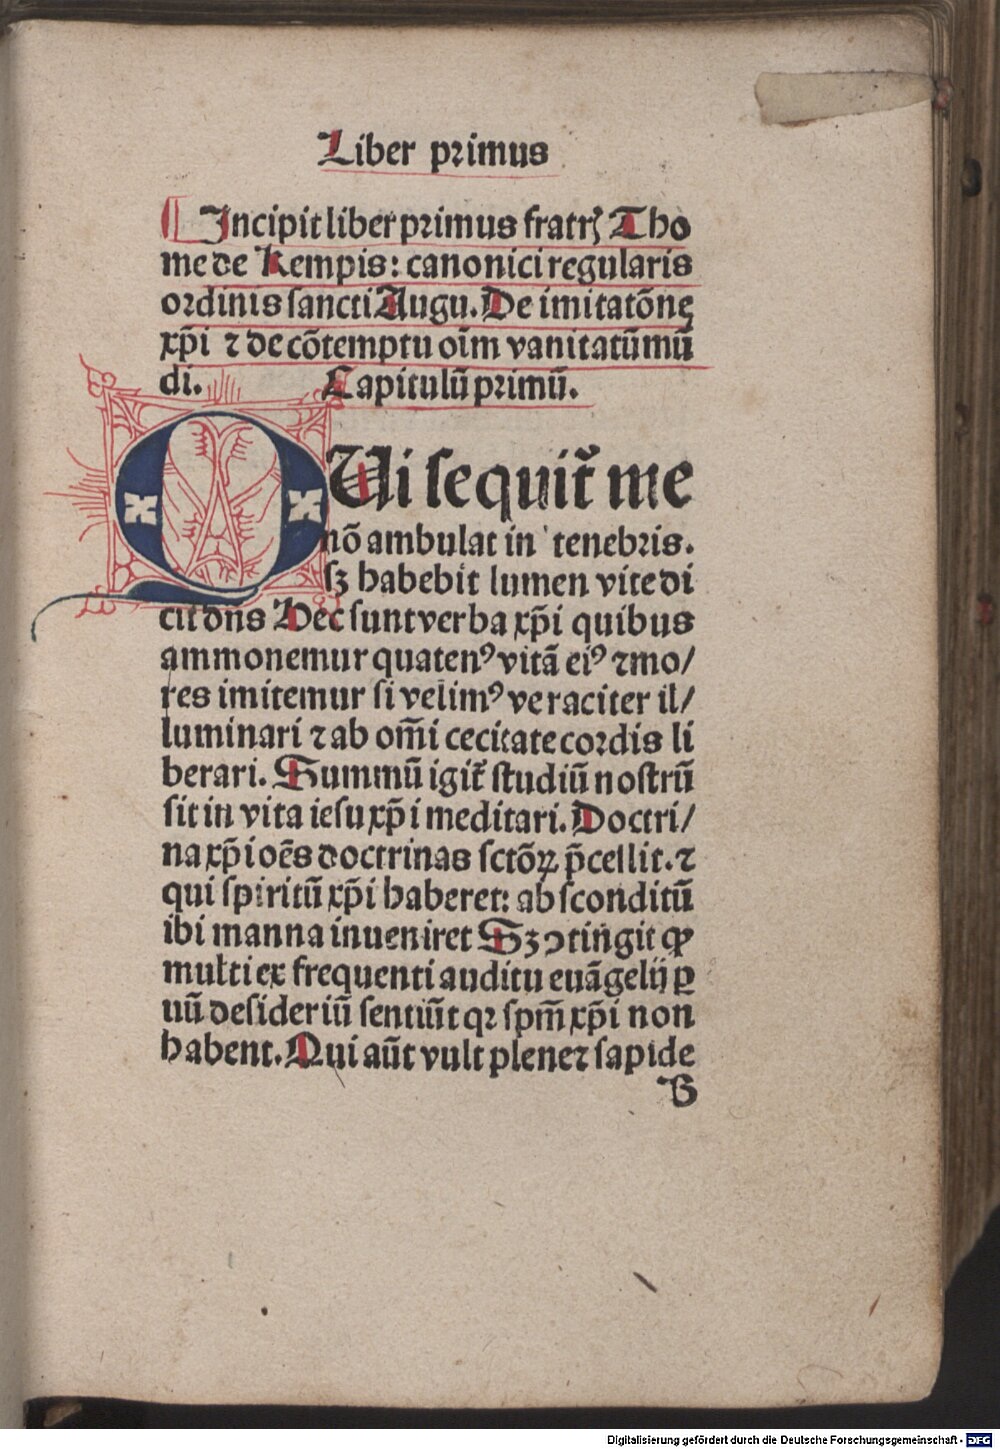 Liber primus
Incipit liber primus fratrꝭ Tho
me de Kempis: canonici regularis
ordinis sancti Augu. De imitatōnę
xp̄i ⁊ de cōtemptu oīm vanitatūmū
di. Capitulū primū.
QUi sequit᷑ me
nō ambulat in tenebris.
sꝫ habebit lumen vite di
cit dn̄s Hec sunt verba xp̄i quibus
ammonemur quatenꝰ vitā eiꝰ ⁊mo/
res imitemur si velimꝰ veraciter il/
luminari ⁊ ab om̄i cecitate cordis li
berari. Summū igit᷑ studiū nostrū
sit in vita iesu xp̄i meditari. Doctri/
na xp̄i oēs doctrinas sctōꝝ p̄cellit. ⁊
qui spiritū xp̄i haberet: absconditū
ibi manna inueniret Sꝫ ꝯtingit ꝙ
multi ex frequenti auditu euāgelij ꝑ
uū desideriū sentiūt qꝛ spm̄ xp̄i non
habent. Qui aūt vult plene⁊ sapide
B
Digitalisierung gefördert durch die Deutsche Forschungsgemeinschaft - DFG